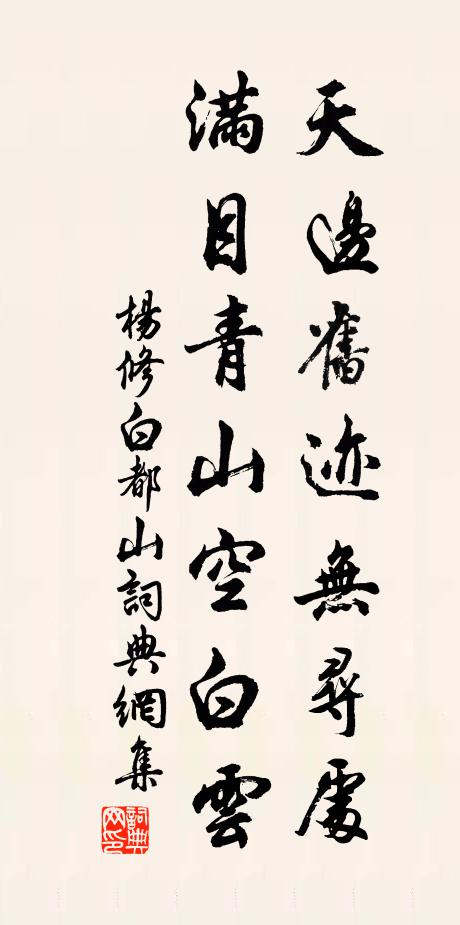 天邊舊迹無尋處
滿目青山空白雲
楊修白都山詞典網集
詞典網印